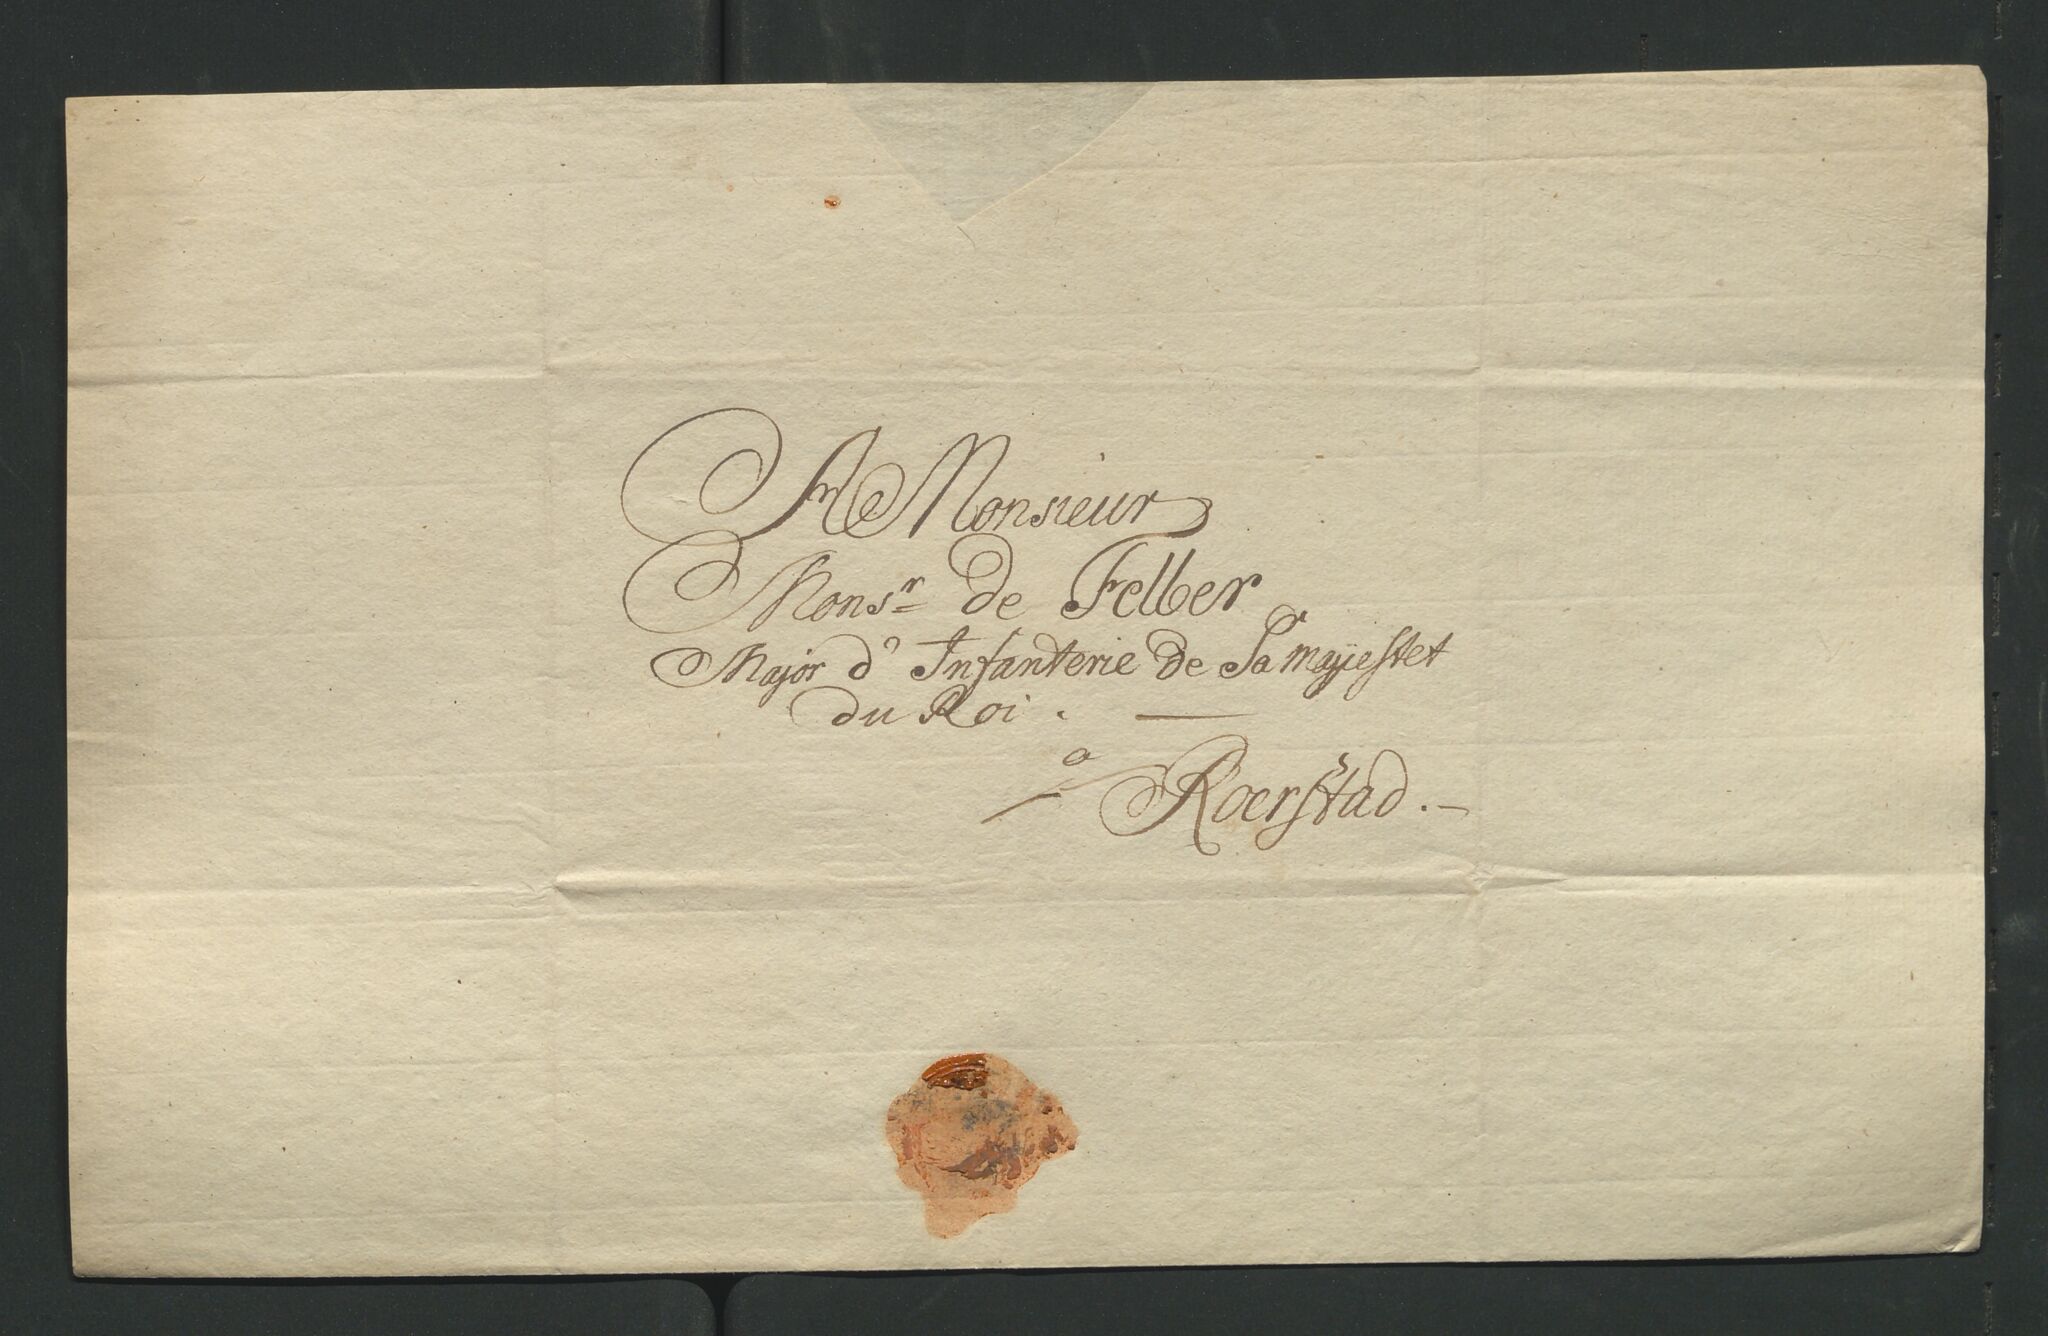 A Monsieur
Monsr de Felber
Major d' Infanterie de Sa Majiestet
du Roi. —
a
Roerstad. —